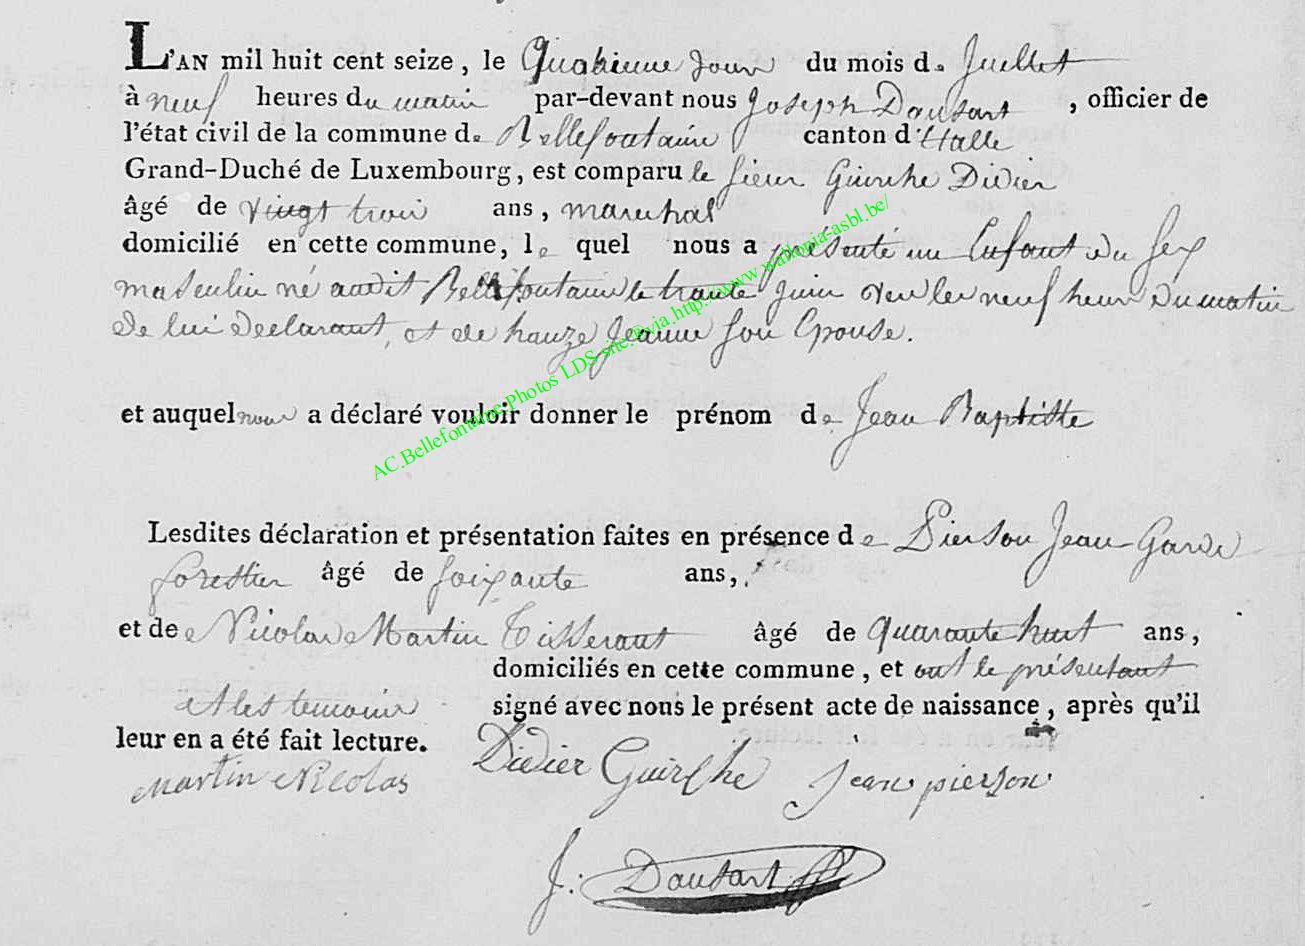 L'AN mil huit cent seize, le Quatrieme jour du mois de Juillet
à neuf heures du matin par-devant nous Joseph Dausart, officier de
l'état civil de la commune de Bellefontaine canton d'Etalle
Grand-Duché de Luxembourg, est comparu le Sieur Guirche Didier
âgé de vingt trois ans, marechal
domicilié en cette commune, le quel nous a présenté un Enfant du Sex
masculin né audit Bellefontaine le trante juin vers les neuf heur du matin
de lui declarant, et de hauze Jeanne son Epouse.
et auquel nous a déclaré vouloir donner le prénom de Jean Baptiste
Lesdites déclaration et présentation faites en présence de Pierson Jean Garde
forestier âgé de soixante ans,
et de Nicolas Martin Tisserant âgé de quarante huit ans,
domiciliés en cette commune, et ont le présentant
et les temoins signé avec nous le présent acte de naissance, après qu'il
leur en a été fait lecture.
Martin Nicolas Didier Guirche Jean pierson
J: Dausart
AC.Bellefontaine.Photos LDS site.©via.http://www.wallonia-asbl.be/